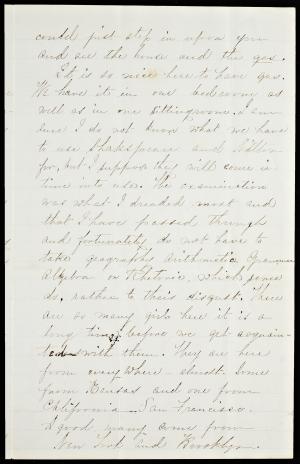 could just step in upon you
and see the house and the gas.
It is so nice here to have gas.
We have it in our bedrooms as
well as in our sittingroom. I am
sure I do not know what we have
to use Shakspeare and Milton
for, but I suppose they will come in
time into use. The examination
was what I dreaded most and
that I have passed through
and fortunately do not have to
take geography Arithmetic Grammar
Algebra or Rhetoric, which some
do, rather to their disgust. There
are so many girls here it is a
long time before we get acquain-
ted with them. They are here
from everywhere - almost. Some
from Kansas and one from
California - San Francisco.
A good many come from
New York and Brooklyn